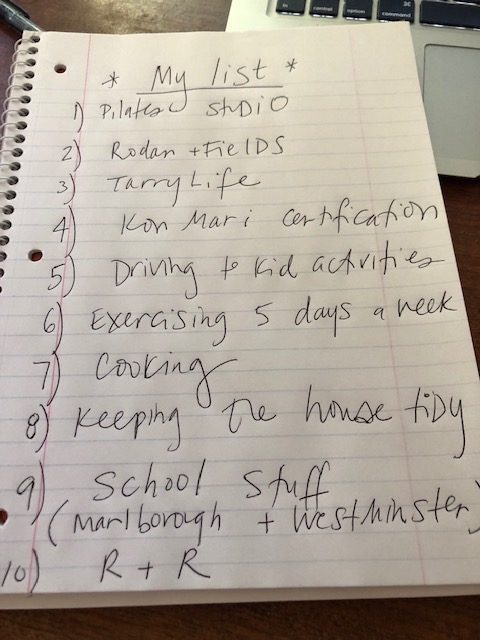 * My list *
1) Pilates studio
2) Rodan + Fields
3) Tarry Life
4) Kon Mari certification
5) Driving to kid activities
6) Exercising 5 days a week
7) Cooking
8) Keeping the house tidy
9) School stuff
(Marlborough + Westminster)
10) R + R
control
option
command